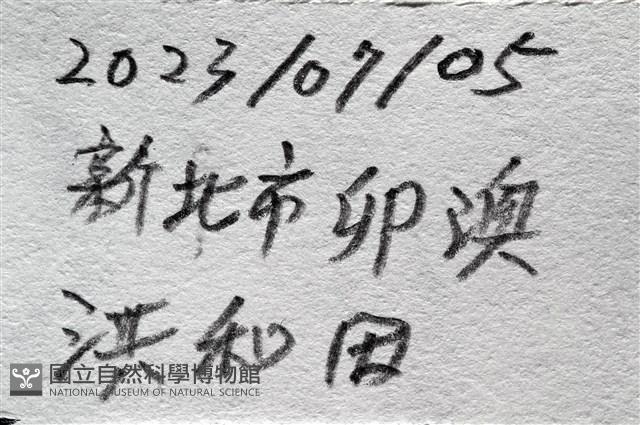 2023/07/05
新北市卯澳
洪和田
國立自然科學博物館
NATIONAL MUSEUM OF NATURAL SCIENCE